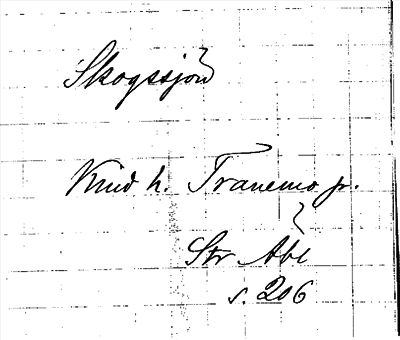 Skogssjön
Kind h. Tranemo p.
Str Åbl
s. 206